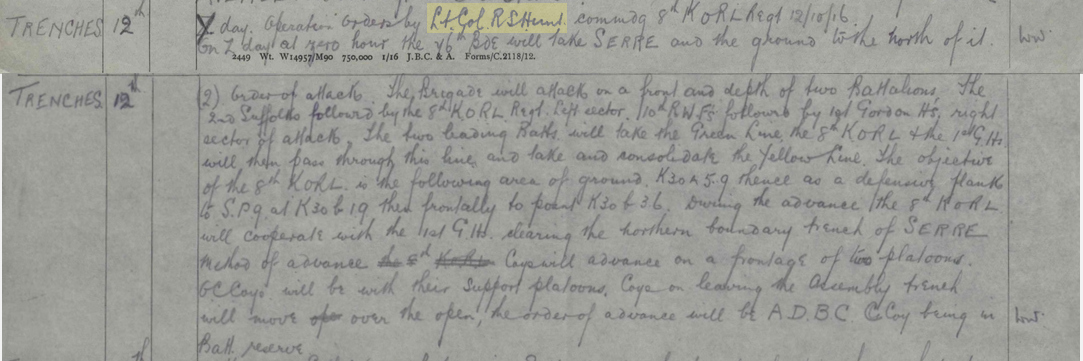 TRENCHES 12th Y day. Operation orders by Lt. Col. R S Hunt commdg 8th K O R L Regt 12/10/16.
On Z day at zero hour the 76th BDE will take SERRE and the ground to the north of it.
2449 Wt. W14957/M90 750,000 1/16 J.B.C. & A. Forms/C.2118/12.
TRENCHES 12th (2) Order of attack. The Brigade will attack on a front and depth of two Battalions. The
2nd Suffolks followed by the 8th K O R L Regt. Left sector. 10th R W Fs followed by 1st Gordon Hs. right
sector of attack. The two leading Batts. will take the Green Line the 8th K O R L & the 1st G. Hs.
will then pass through this line and take and consolidate the Yellow Line. The objective
of the 8th K O R L. is the following area of ground. K30 5.9 thence as a defensive flank
to S.P 9 at K30 b 19 then frontally to point K30 b 36. During the advance the 8th K O R L
will cooperate with the 1st G. Hs. clearing the northern boundary trench of SERRE
Method of advance the 8th K O R L Coys will advance on a frontage of two platoons.
OC Coys will be with their support platoons. Coys on leaving the Assembly trench
will move over the open, the order of advance will be A. D. B C C Coy being in
Batt. reserve